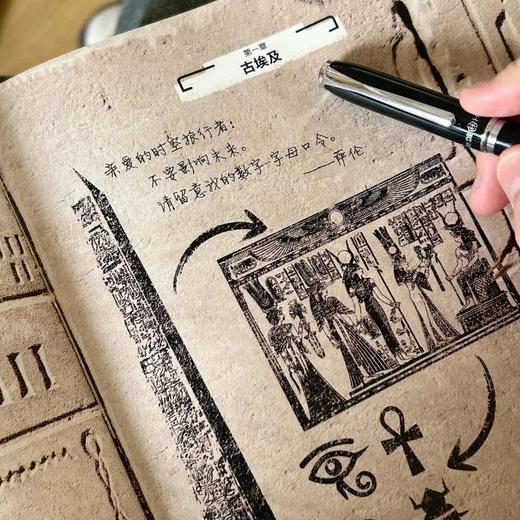 第一章
古埃及
亲爱的时空旅行者：
不要影响未来。
请留意我的数字-字母口令。
——萨伦